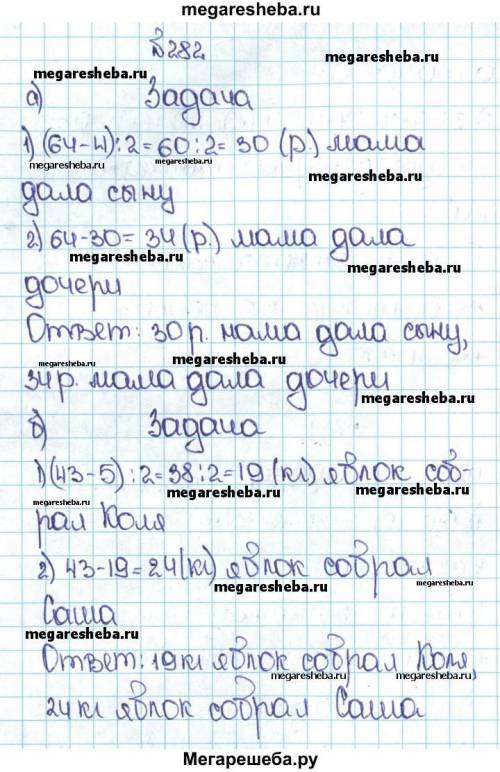 megaresheba.ru
№282
megaresheba.ru
megaresheba.ru
а) Задача
1) (64-4):2=60:2=30 (р.) мама
megaresheba.ru
megaresheba.ru
megaresheba.ru
дала сыну
2) 64-30=34(р.) мама дала
megaresheba.ru
megaresheba.ru
дочери
Ответ: 30р. мама дала сыну,
megaresheba.ru
megaresheba.ru
34р. мама дала дочери
megaresheba.ru
б) Задача
1) (43-5):2=38:2=19 (кг) яблок соб-
megaresheba.ru
megaresheba.ru
megaresheba.ru
рал Коля
2) 43-19=24(кг) яблок собрал
megaresheba.ru
megaresheba.ru
Саша
megaresheba.ru
Ответ: 19кг яблок собрал Коля,
megaresheba.ru
megaresheba.ru
24кг яблок собрал Саша
Мегарешеба.ру